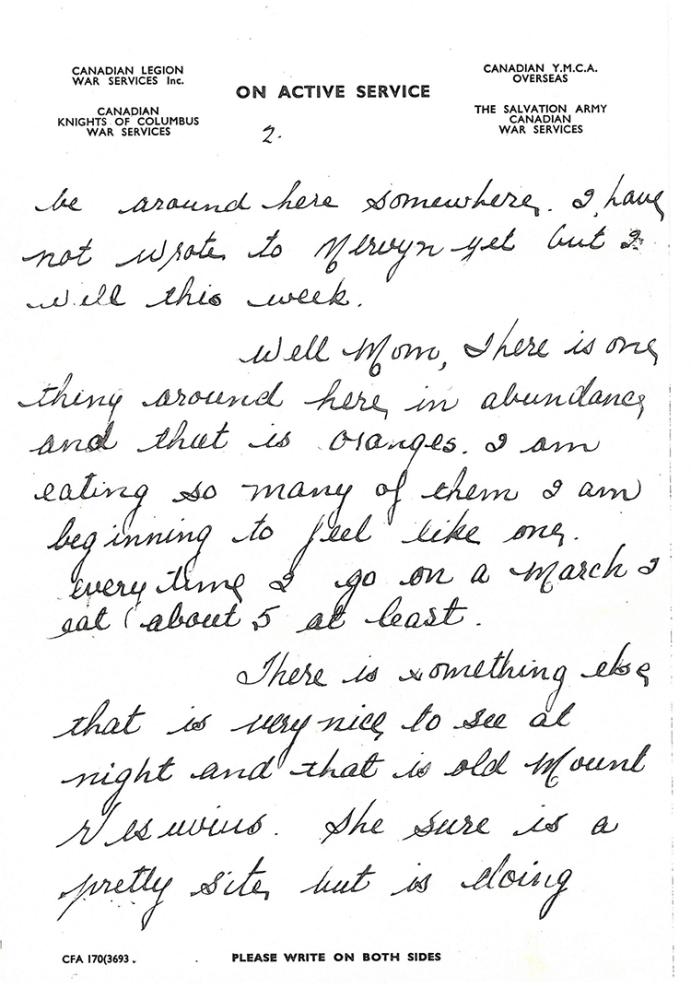 CANADIAN LEGION
WAR SERVICES Inc.
CANADIAN
KNIGHTS OF COLUMBUS
WAR SERVICES
ON ACTIVE SERVICE
CANADIAN Y.M.C.A.
OVERSEAS
THE SALVATION ARMY
CANADIAN
WAR SERVICES
2.
be around here somewhere. I have
not wrote to Mervyn yet but I
will this week.
Well Mom, There is one
thing around here in abundance
and that is oranges. I am
eating so many of them I am
beginning to feel like one.
every time I go on a march I
eat about 5 at least.
There is something else
that is very nice to see at
night and that is old Mount
Vesuvius. She sure is a
pretty site but is doing
CFA 170(3693.
PLEASE WRITE ON BOTH SIDES